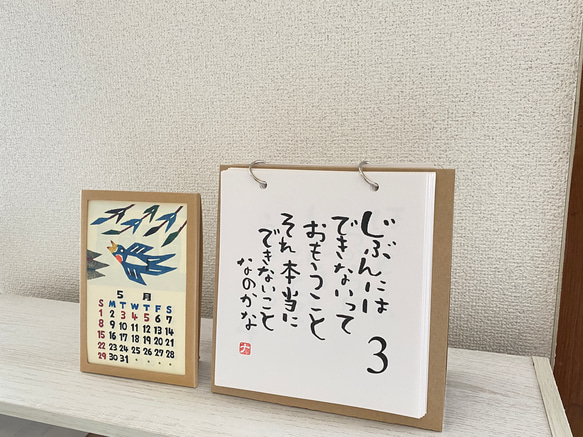 5月
S M T W T F S
1 2 3 4 5 6 7
8 9 10 11 12 13 14
15 16 17 18 19 20 21
22 23 24 25 26 27 28
29 30 31
3
じぶんには
できないって
おもうこと
それ本当に
できないこと
なのかな